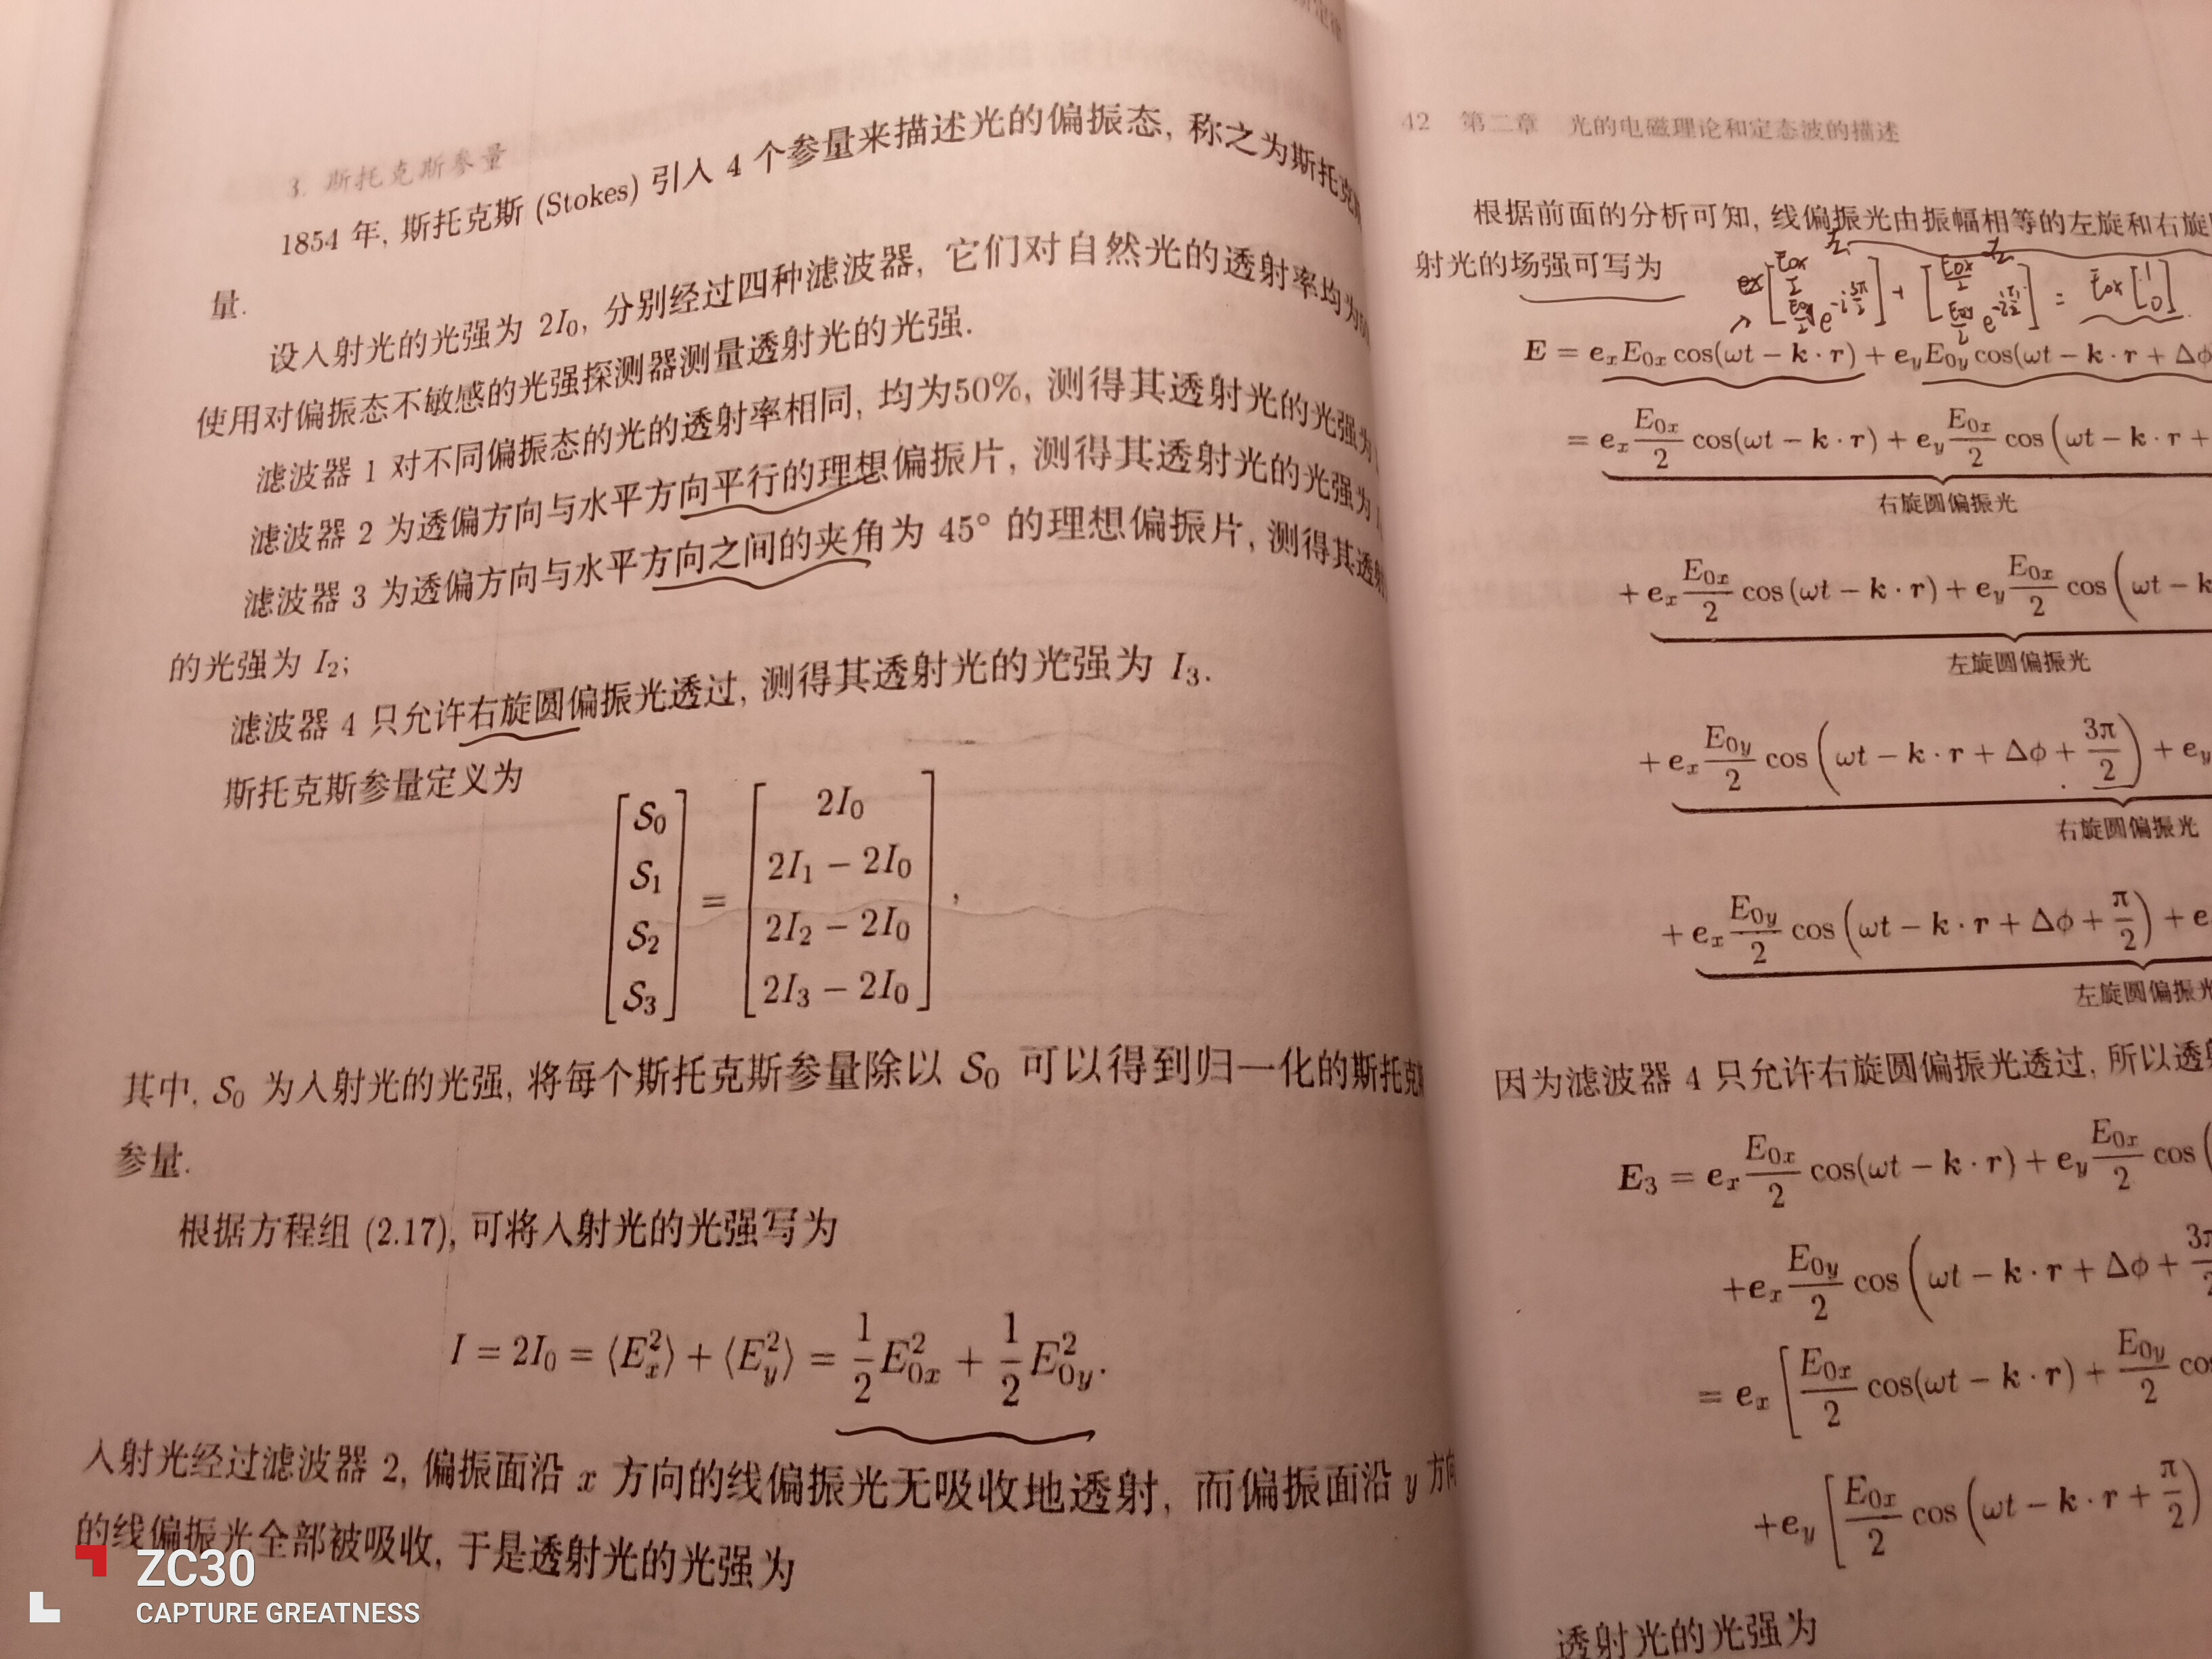 3. 斯托克斯参量
1854 年, 斯托克斯 (Stokes) 引入 4 个参量来描述光的偏振态, 称之为斯托克
量.
设入射光的光强为 2I₀, 分别经过四种滤波器, 它们对自然光的透射率均为
使用对偏振态不敏感的光强探测器测量透射光的光强.
滤波器 1 对不同偏振态的光的透射率相同, 均为50%, 测得其透射光的光强为
滤波器 2 为透偏方向与水平方向平行的理想偏振片, 测得其透射光的光强为
滤波器 3 为透偏方向与水平方向之间的夹角为 45° 的理想偏振片, 测得其透射
的光强为 I₂;
滤波器 4 只允许右旋圆偏振光透过, 测得其透射光的光强为 I₃.
斯托克斯参量定义为
[S₀ S₁ S₂ S₃] = [2I₀ 2I₁ − 2I₀ 2I₂ − 2I₀ 2I₃ − 2I₀],
其中, S₀ 为入射光的光强, 将每个斯托克斯参量除以 S₀ 可以得到归一化的斯托克
参量.
根据方程组 (2.17), 可将入射光的光强写为
I = 2I₀ = ⟨Eₓ²⟩ + ⟨E_y²⟩ = 1/2 E₀ₓ² + 1/2 E₀y².
入射光经过滤波器 2, 偏振面沿 x 方向的线偏振光无吸收地透射, 而偏振面沿 y 方向
的线偏振光全部被吸收, 于是透射光的光强为
ZC30
CAPTURE GREATNESS
42 第二章 光的电磁理论和定态波的描述
根据前面的分析可知, 线偏振光由振幅相等的左旋和右旋
射光的场强可写为
= E₀ₓ [1 0]
E = eₓE₀ₓ cos(ωt − k · r) + e_yE₀y cos(ωt − k · r + Δϕ
= eₓ E₀ₓ/2 cos(ωt − k · r) + e_y E₀ₓ/2 cos (ωt − k · r +
右旋圆偏振光
+ eₓ E₀ₓ/2 cos (ωt − k · r) + e_y E₀ₓ/2 cos (ωt − k
左旋圆偏振光
+ eₓ E₀y/2 cos (ωt − k · r + Δϕ + 3π/2) + e_y
右旋圆偏振光
+ eₓ E₀y/2 cos (ωt − k · r + Δϕ + π/2) + e
左旋圆偏振光
因为滤波器 4 只允许右旋圆偏振光透过, 所以透射
E₃ = eₓ E₀ₓ/2 cos(ωt − k · r) + e_y E₀ₓ/2 cos (
+eₓ E₀y/2 cos (ωt − k · r + Δϕ + 3π/2
= eₓ [E₀ₓ/2 cos(ωt − k · r) + E₀y/2 cos
+e_y [E₀ₓ/2 cos (ωt − k · r + π/2)
透射光的光强为